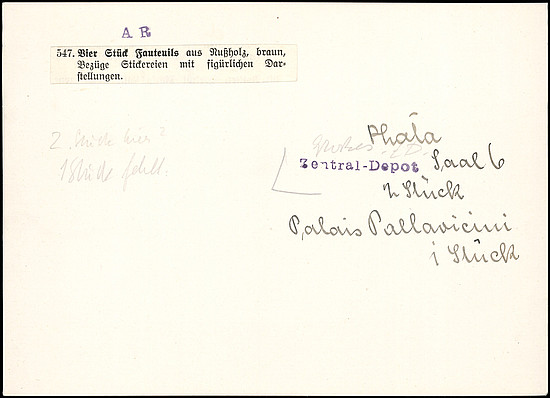 A R
547. Vier Stück Fauteuils aus Nußholz, braun,
Bezüge Stickereien mit figürlichen Dar-
stellungen.
2 Stücke hier?
1 Stück fehlt.
Zentral-Depot Saal 6
2 Stück
Palais Pallavicini
1 Stück